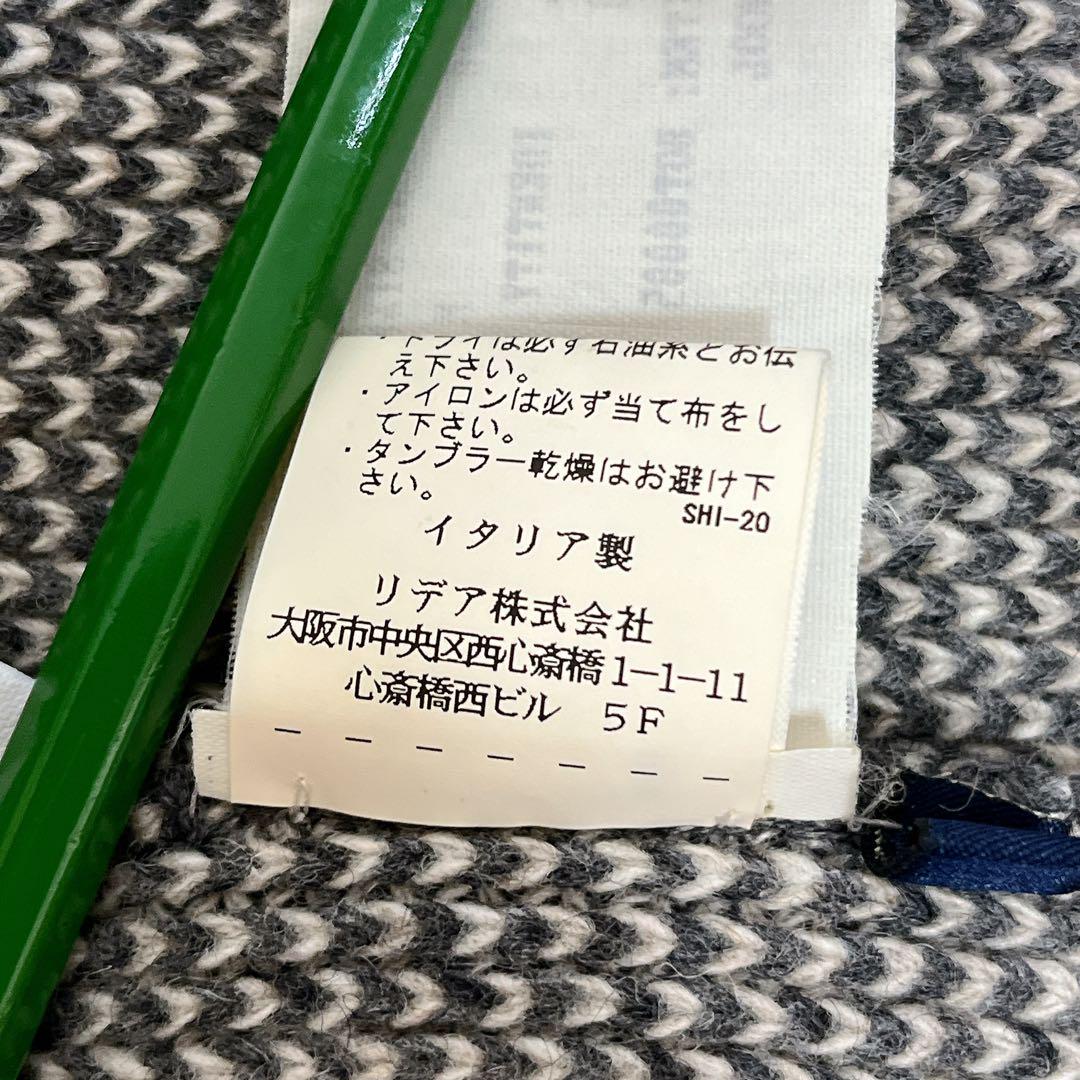 ・ドライは必ず石油系とお伝
え下さい。
・アイロンは必ず当て布をし
て下さい。
・タンブラー乾燥はお避け下
さい。
SHI-20
イタリア製
リデア株式会社
大阪市中央区西心斎橋1-1-11
心斎橋西ビル 5F
- - - - - - -